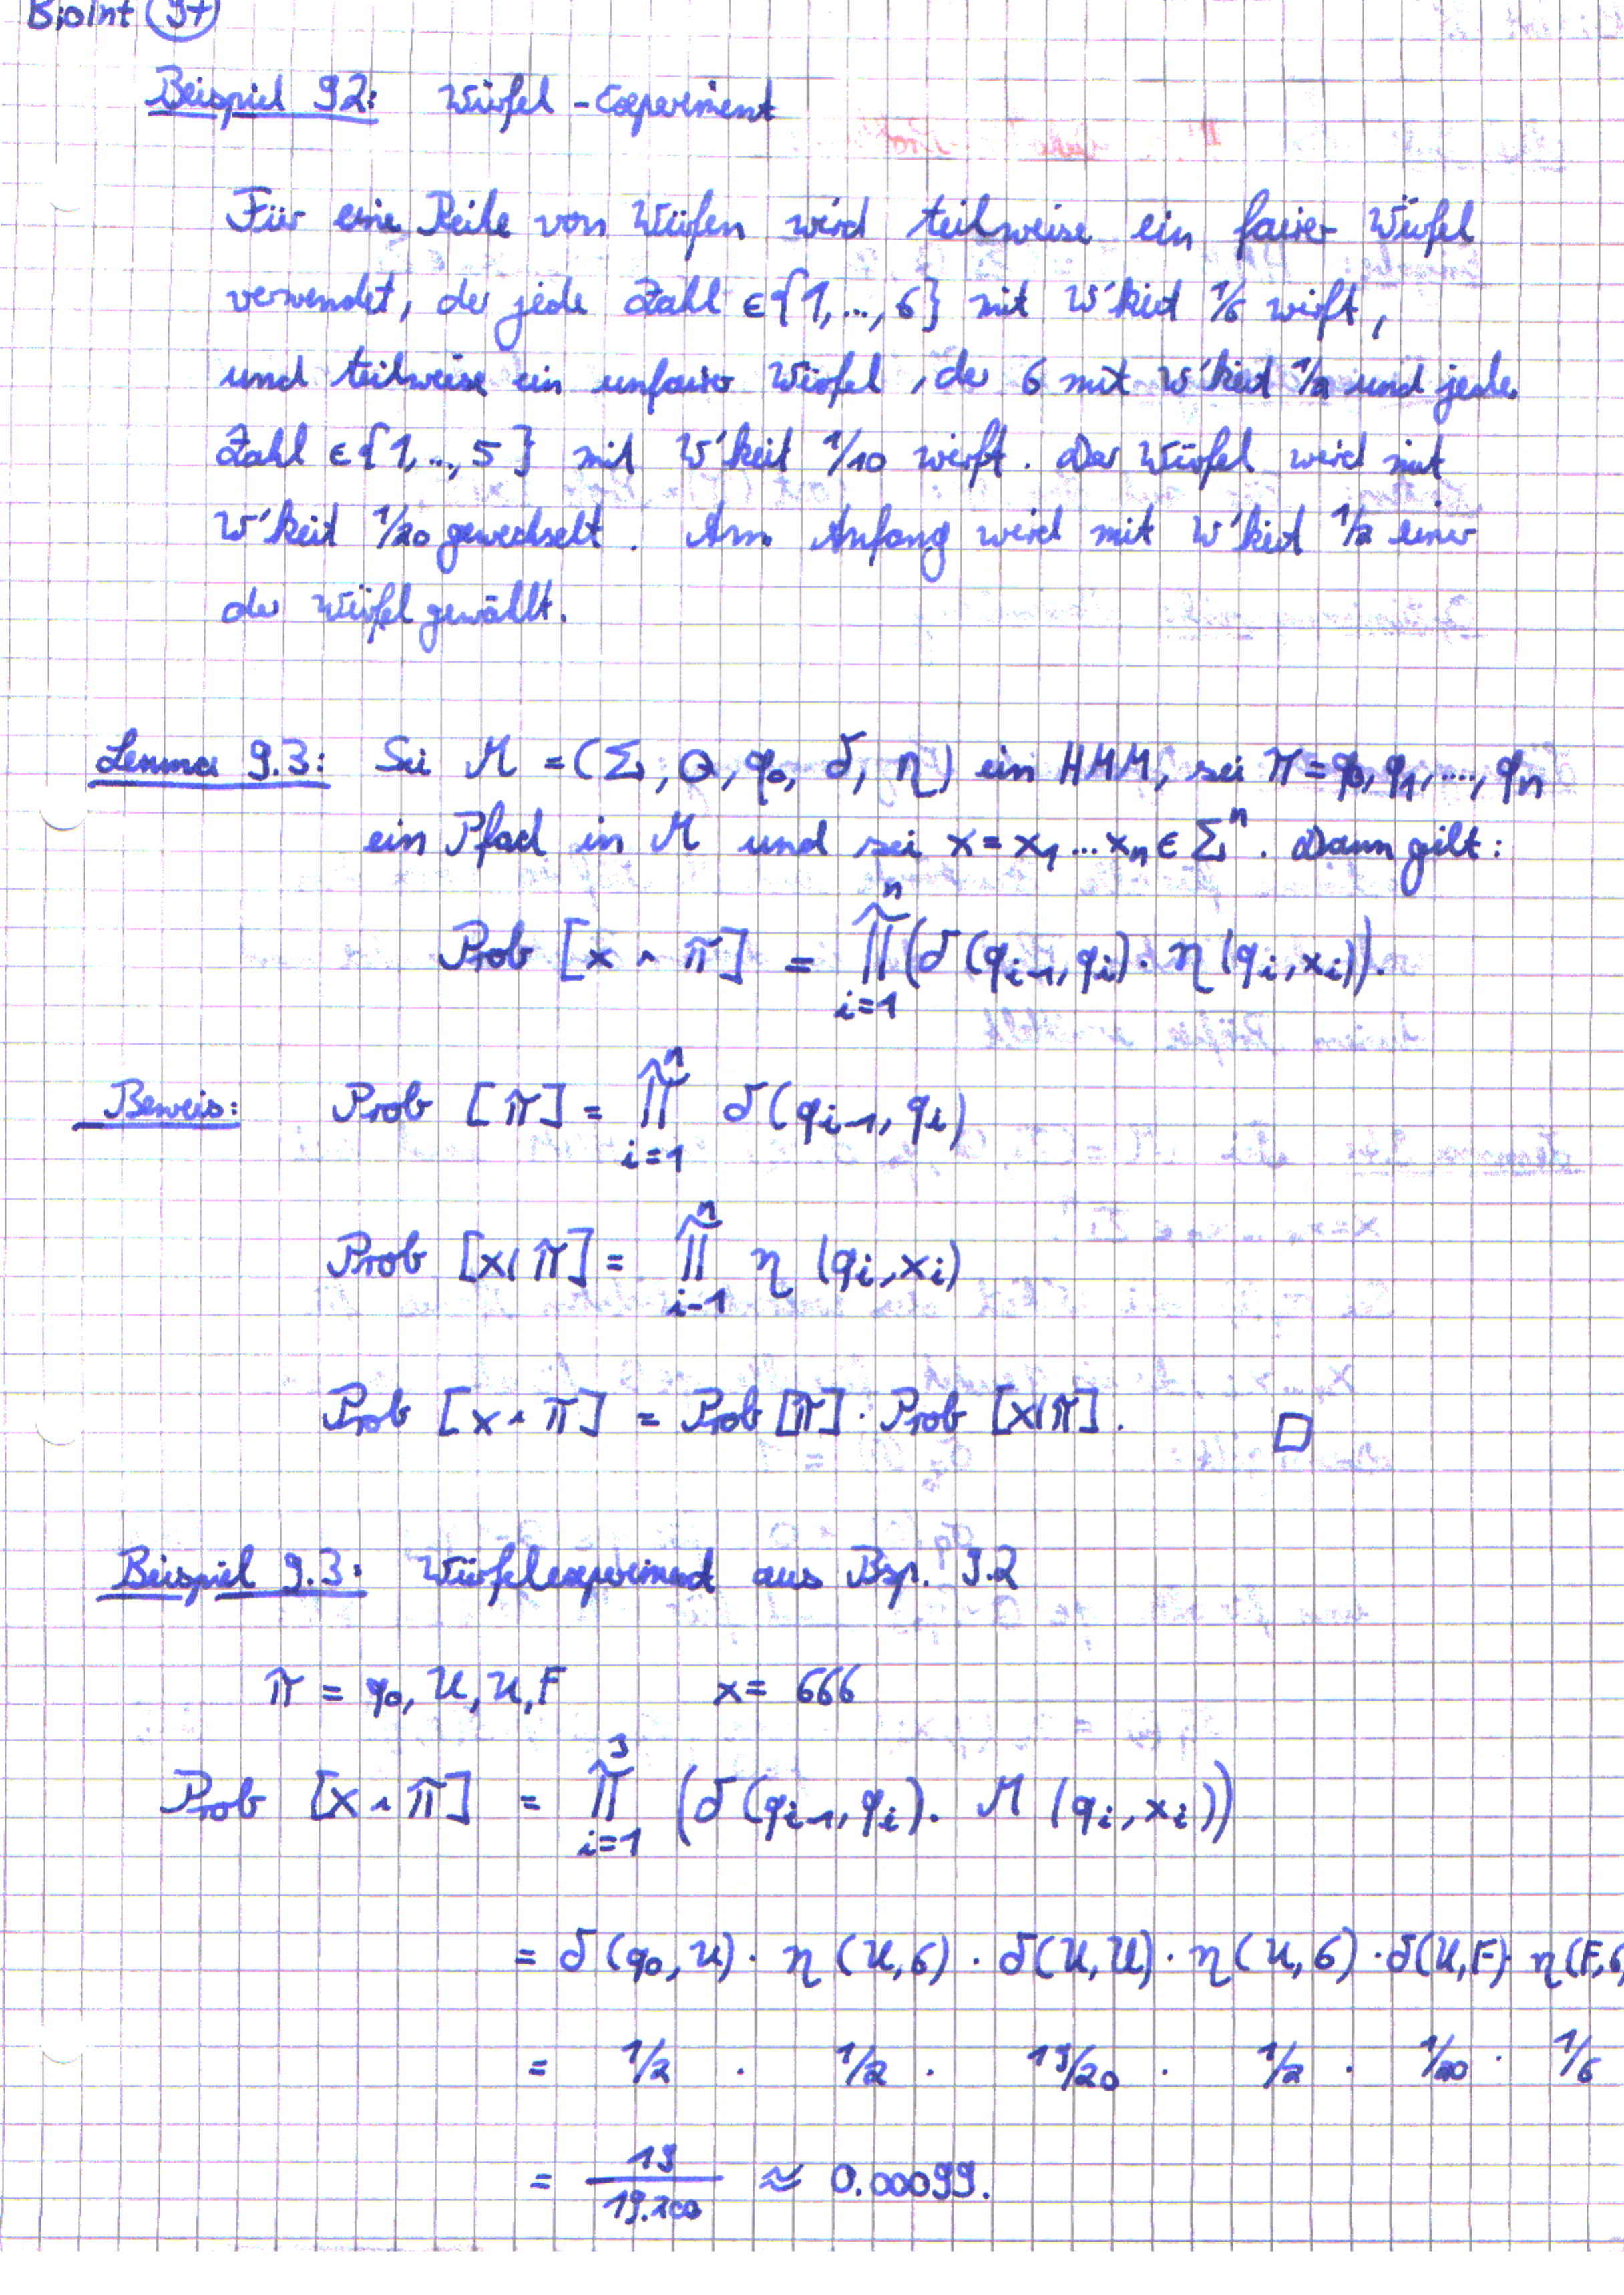 Bioint
Beispiel 9.2: Würfel-Experiment
Für eine Reihe von Würfen wird teilweise ein fairer Würfel
verwendet, der jede Zahl ∈{1,..,6} mit W'keit 1/6 wirft,
und teilweise ein unfairer Würfel, der 6 mit W'keit 1/2 und jede
Zahl ∈{1,..,5} mit W'keit 1/10 wirft. Der Würfel wird mit
W'keit 1/20 gewechselt. Am Anfang wird mit W'keit 1/2 einer
der Würfel gewählt.
Lemma 9.3: Sei M = (Σ, Q, q₀, δ, η) ein HMM, sei π = q₀, q₁, ...., qₙ
ein Pfad in M und sei x = x₁...xₙ ∈ Σⁿ. Dann gilt:
Prob [x ∧ π] = ∏_{i=1}^{n} (δ(q_{i-1}, q_i) · η(q_i, x_i)).
Beweis: Prob [π] = ∏_{i=1}^{n} δ(q_{i-1}, q_i)
Prob [x|π] = ∏_{i-1}^{n} η (q_i, x_i)
Prob [x ∧ π] = Prob [π] · Prob [x|π]. □
Beispiel 9.3: Würfelexperiment aus Bsp. 9.2
π = q₀, U, U, F x = 666
Prob [x ∧ π] = ∏_{i=1}^{3} (δ(q_{i-1}, q_i). M (q_i, x_i))
= δ(q₀, U) · η(U,6) · δ(U,U) · η(U,6) · δ(U,F) · η(F,6
= 1/2 · 1/2 · 19/20 · 1/2 · 1/20 · 1/6
= 19/19.200 ≈ 0.00099.